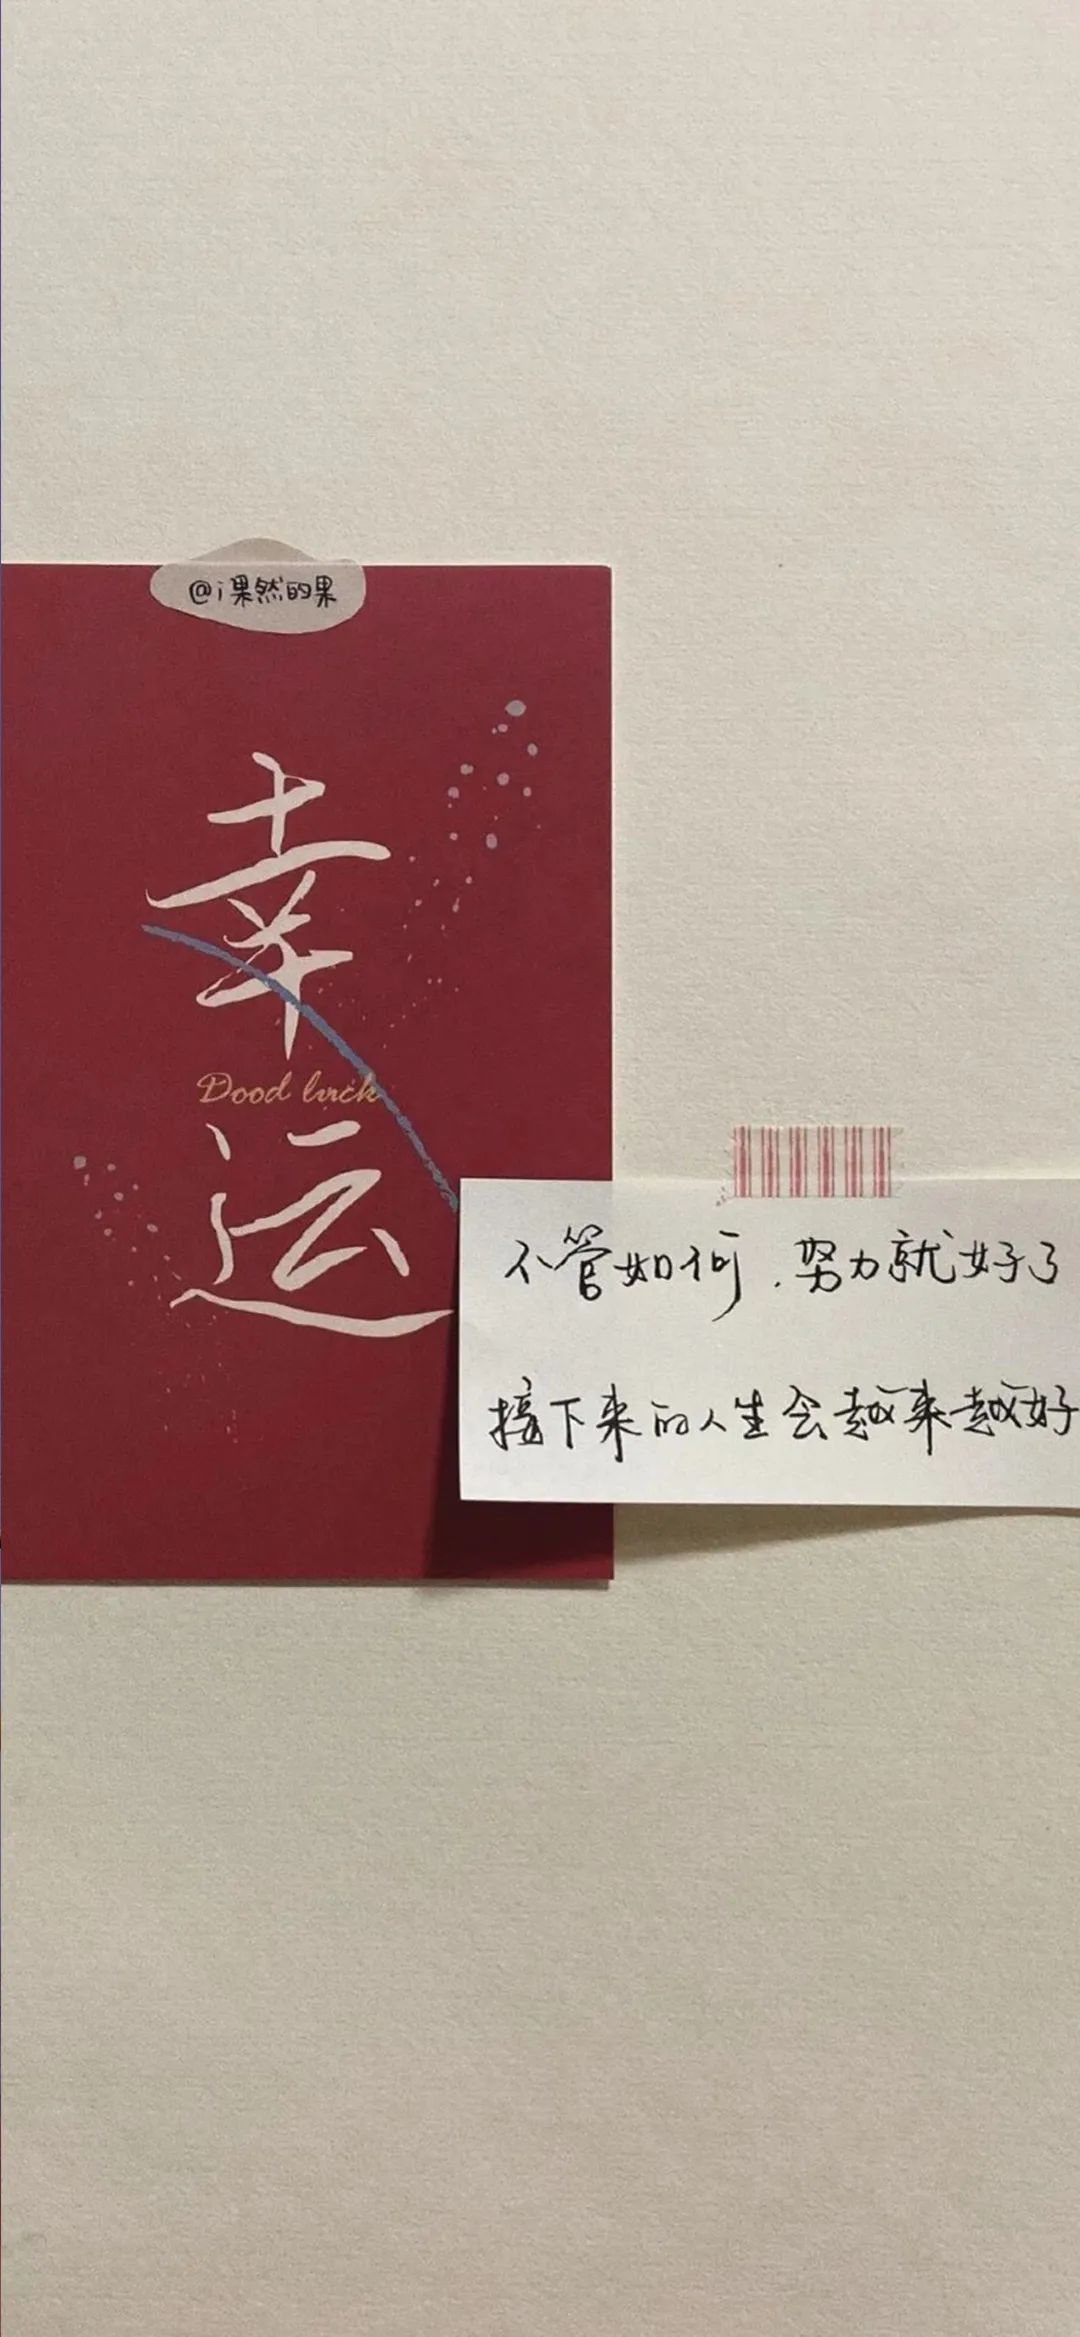 @i果然的果
幸
Dood luck
运
不管如何.努力就好了
接下来的人生会越来越好